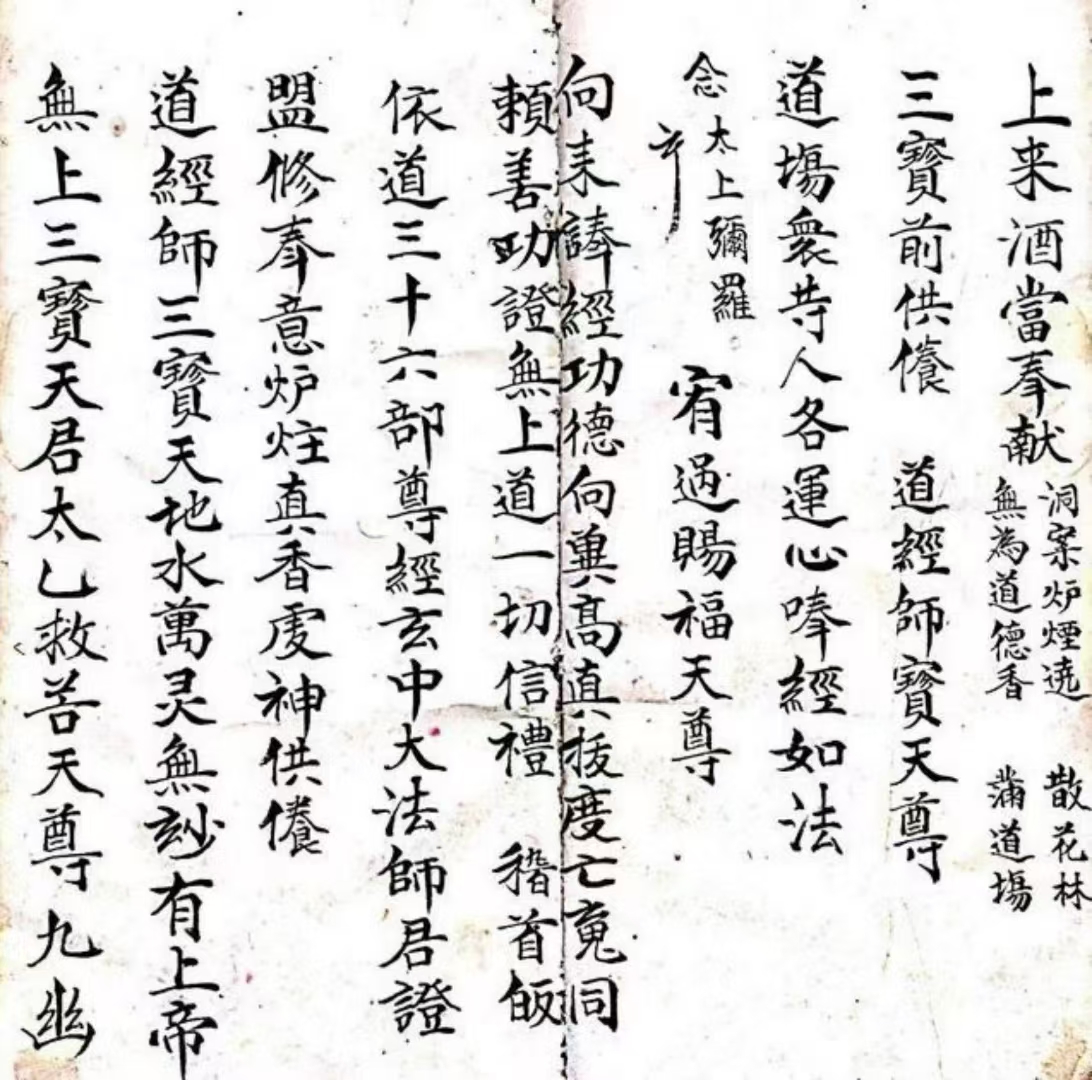 上来酒當奉献
洞案炉煙遶 散花林
無為道德香 蒲道塲
三寳前供養 道經師寳天尊
道塲衆䒭人各運心唪經如法
念太上彌羅
宥過賜福天尊
向来諱經功德向兾髙真拔度亡䰟同
頼善功證無上道一切信禮 稽首皈
依道三十六部尊經玄中大法師君證
盟修奉意炉炷真香虔神供養
道經師三寳天地水萬灵無玅有上帝
無上三寳天君太乙救苦天尊九幽